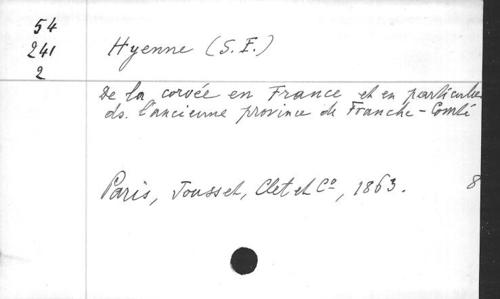 54
241
2
Hyenne (S. E.)
De la corvée en France et en particulier
ds. l'ancienne province de Franche-Comté
Paris, Jousset, Clet et Cº, 1863.
8